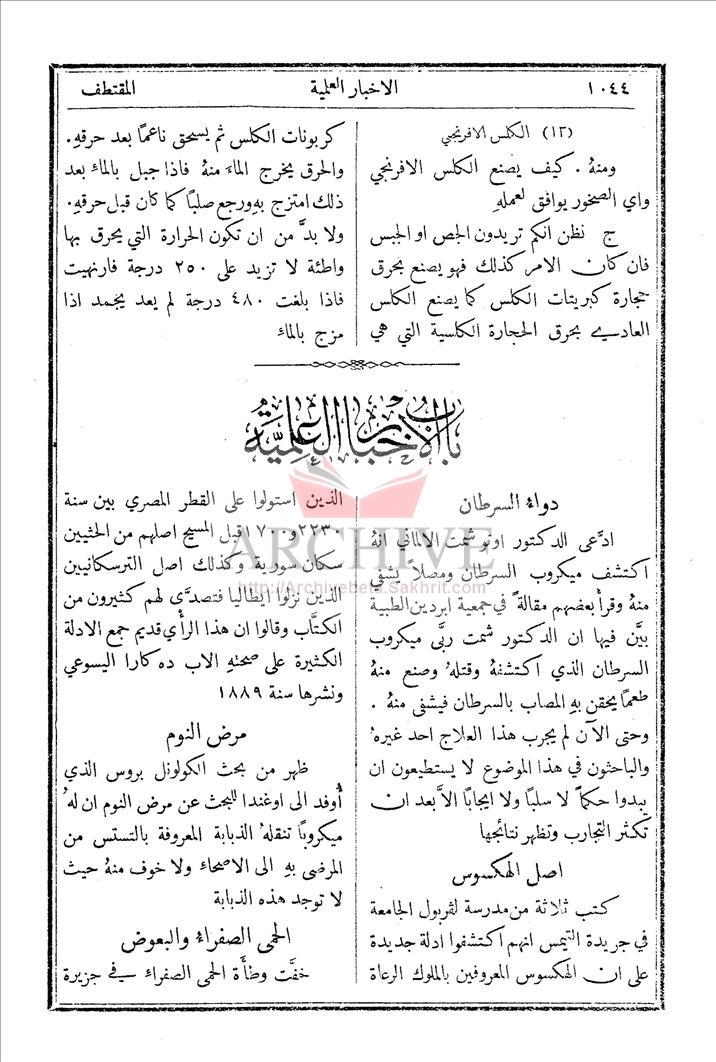 ١٠٤٤ الاخبار العلمية المقتطف
(١٢) الكلس الافرنجي
ومنهُ . كيف يصنع الكلس الافرنجي
واي الصخور يوافق لعملهِ
ج نظن انكم تريدون الجص او الجبس
فان كان الامر كذلك فهو يصنع بحرق
حجارة كبريتات الكلس كما يصنع الكلس
العادي بحرق الحجارة الكلسية التي هي
كربونات الكلس ثم يسحق ناعمًا بعد حرقهِ.
والحرق يخرج الماءَ منهُ فاذا جبل بالماءِ بعد
ذلك امتزج بهِ ورجع صلبًا كما كان قبل حرقهِ.
ولا بدَّ من ان تكون الحرارة التي يحرق بها
واطئة لا تزيد على ٢٥٠ درجة فارنهيت
فاذا بلغت ٤٨٠ درجة لم يعد يجمد اذا
مزج بالماءِ
باب الاخبار العلميَّة
دواءُ السرطان
ادَّعى الدكتور اوتو شمت الالماني انهُ
اكتشف ميكروب السرطان ومصلاً يشفي
منهُ وقرأ بعضهم مقالةً في جمعية ابردين الطبية
بيَّن فيها ان الدكتور شمت ربَّى ميكروب
السرطان الذي اكتشفهُ وقتلهُ وصنع منهُ
طعمًا يحقن بهِ المصاب بالسرطان فيشفى منهُ .
وحتى الآن لم يجرب هذا العلاج احد غيرهُ
والباحثون في هذا الموضوع لا يستطيعون ان
يبدوا حكمًا لا سلبًا ولا ايجابًا الاَّ بعد ان
تكثر التجارب وتظهر نتائجها
اصل الهكسوس
كتب ثلاثة من مدرسة لڤربول الجامعة
في جريدة التيمس انهم اكتشفوا ادلة جديدة
على ان الهكسوس المعروفين بالملوك الرعاة
الذين استولوا على القطر المصري بين سنة
٢٢٣٠ و١٧٠٠ قبل المسيح اصلهم من الحثيين
سكان سورية وكذلك اصل الترسكانيين
الذين نزلوا ايطاليا فتصدَّى لهم كثيرون من
الكتَّاب وقالوا ان هذا الرأي قديم جمع الادلة
الكثيرة على صحتهِ الاب ده كارا اليسوعي
ونشرها سنة ١٨٨٩
مرض النوم
ظهر من بحث الكولونل بروس الذي
أُوفد الى اوغندا للبحث عن مرض النوم ان لهُ
ميكروبًا تنقلهُ الذبابة المعروفة بالتستس من
المرضى بهِ الى الاصحاء ولا خوف منهُ حيث
لا توجد هذه الذبابة
الحمى الصفراءُ والبعوض
خفَّت وطأَة الحمى الصفراءِ في جزيرة
ARCHIVE
http://Archivebeta.Sakhrit.com